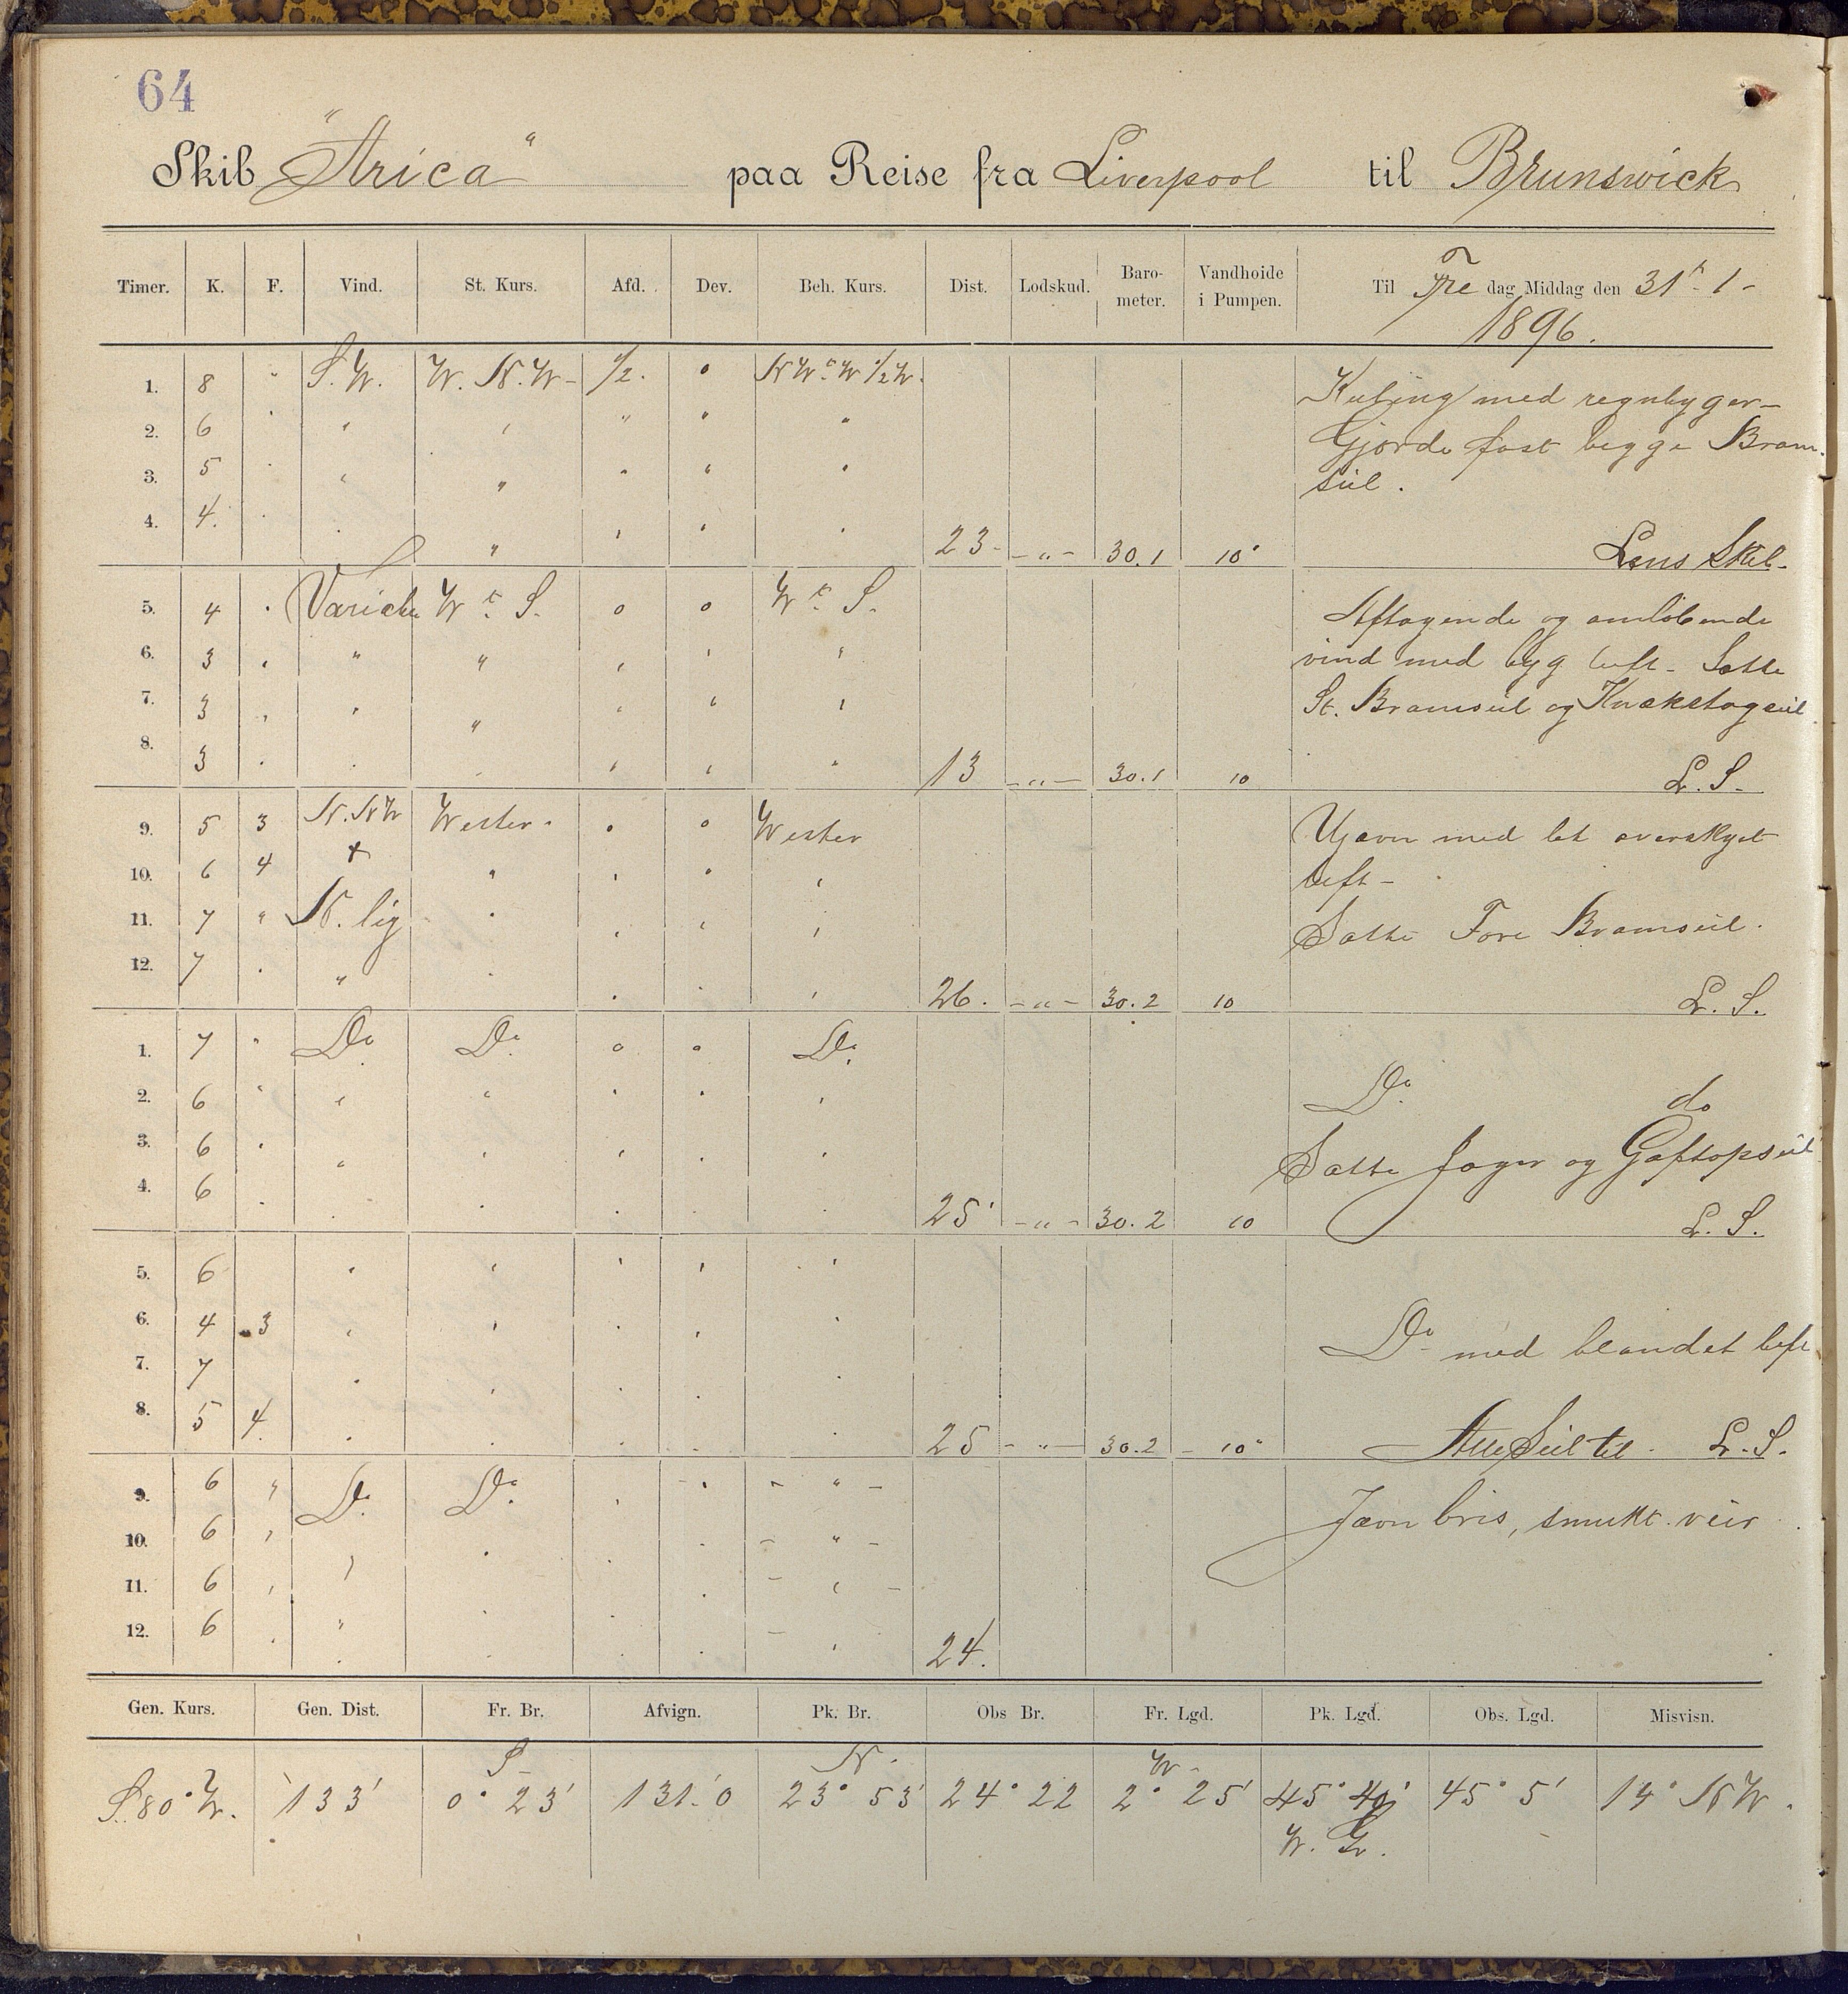 64
Skib "Arica" paa Reise fra Liverpool til Brunswick
Timer. K. F. Vind. St. Kurs. Afd. Dev. Beh. Kurs. Dist. Lodskud. Baro-meter. Vandhoide i Pumpen. Til Fre dag Middag den 31t 1 -
1896.
1. 8 " S.W. W.N.W- 1/2. 0 NWtW 1/2 W. Kuling med regnbyger-
2. 6 " " " " " " Gjorde fast begge Bram-
3. 5 " " " " " " seil.
4. 4. " " " " " " 23- -"- 30.1 10" Lens Skib-
5. 4 " Variabel Wt S. 0 0 Wt S. Aftagende og omløbende
6. 3 " " " " " " vind med byg luft- Satte
7. 3 " " " " " " St. Bramseil og Knækstagseil
8. 3 " " " " " " 13 -"- 30.1 10 L.S.
9. 5 3 N.NW Wester. 0 0 Wester Ujævn med let overskyet
10. 6 4 + " " " " luft-
11. 7 " N.lig " " " " Satte Fore Bramseil.
12. 7 " " " " " " 26. -"- 30.2 10 L.S.
1. 7 " Do Do 0 0 Do
2. 6 " " " " " " Do do
3. 6 " " " " " " Satte Jager og Gaftopseil
4. 6 " " " " " " 25' -"- 30.2 10 L.S.
5. 6 " " " " "
6. 4 3 " " " " " Do med blandet luft
7. 7 " " " " "
8. 5 4 " " " " " 25 -"- 30.2 - 10" Alle Seil til. L.S.
9. 6 " Do Do " " - " - Jævn bris, smukt veir
10. 6 " " " " - " -
11. 6 " " " " - " -
12. 6 " " " " " - " 24.
Gen. Kurs. Gen. Dist. Fr. Br. Afvign. Pk. Br. Obs Br. Fr. Lgd. Pk. Lgd. Obs. Lgd. Misvisn.
S N. W-
S 80° W. 133' 0° 23' 131.0 23° 53' 24° 22 2° 25' 45° 40' 45° 5' 14° NW.
W. Gr.